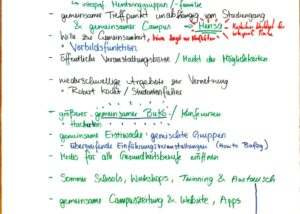 - interprof. Mentoringgruppen / -familie
- gemeinsamer Treffpunkt unabhängig von Studiengang
& gemeinsamer Campus → Mensa
- Wille zur Gemeinsamkeit, keine Angst vor
• Vorbildsfunktion
- Öffentliche Veranstaltungsreihe / Markt der Möglichkeiten
- niederschwellige Angebote zur Vernetzung
• Robert Kocht / Studententfutter
- größerer gemeinsamer BuKo / Konferenzen
Hackathon
- gemeinsame Erstiwoche - gemischte Gruppen
• übergreifende Einführungsveranstaltungen (How to Bafög)
- Medis für alle Gesundheitsberufe eröffnen
- Sommer Schools, Workshops, Twinning & Austausch
- gemeinsame Campuszeitung & Website, Apps